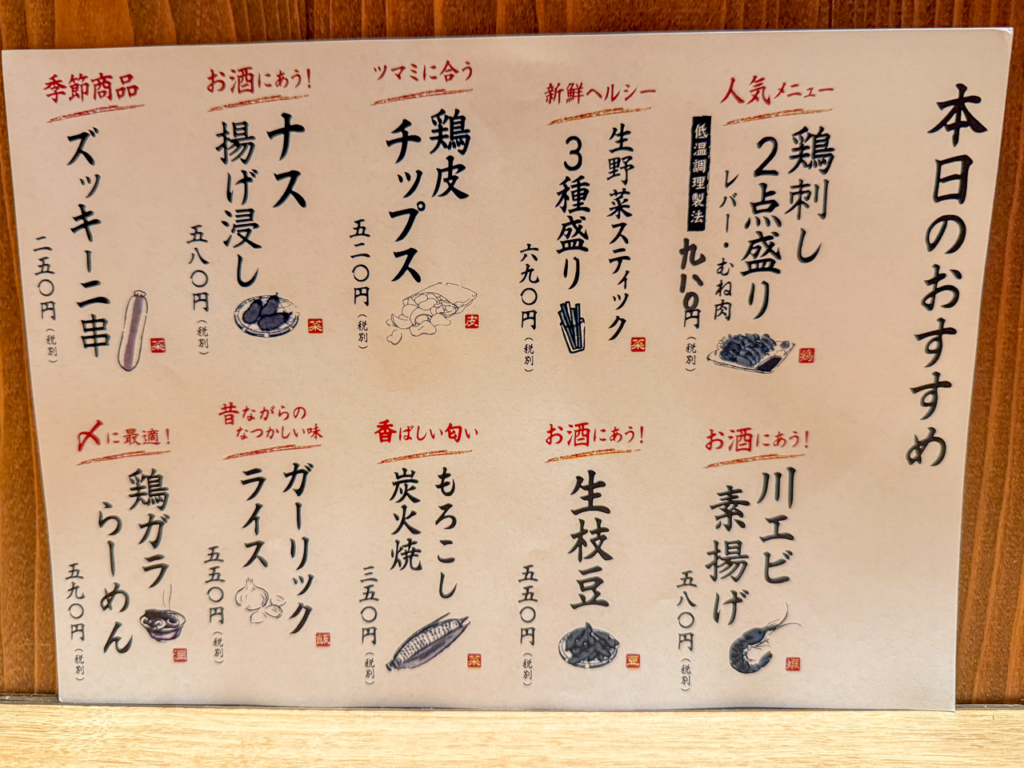 本日のおすすめ
人気メニュー
鶏刺し
2点盛り
レバー・むね肉
低温調理製法
九八〇円（税別）
鶏
新鮮ヘルシー
生野菜スティック
3種盛り
六九〇円（税別）
菜
ツマミに合う
鶏皮
チップス
五二〇円（税別）
皮
お酒にあう！
ナス
揚げ浸し
五八〇円（税別）
菜
季節商品
ズッキーニ串
二五〇円（税別）
菜
お酒にあう！
川エビ
素揚げ
五八〇円（税別）
お酒にあう！
生枝豆
五五〇円（税別）
豆
香ばしい匂い
もろこし
炭火焼
三五〇円（税別）
菜
昔ながらの
なつかしい味
ガーリック
ライス
五五〇円（税別）
飯
〆に最適！
鶏ガラ
らーめん
五九〇円（税別）